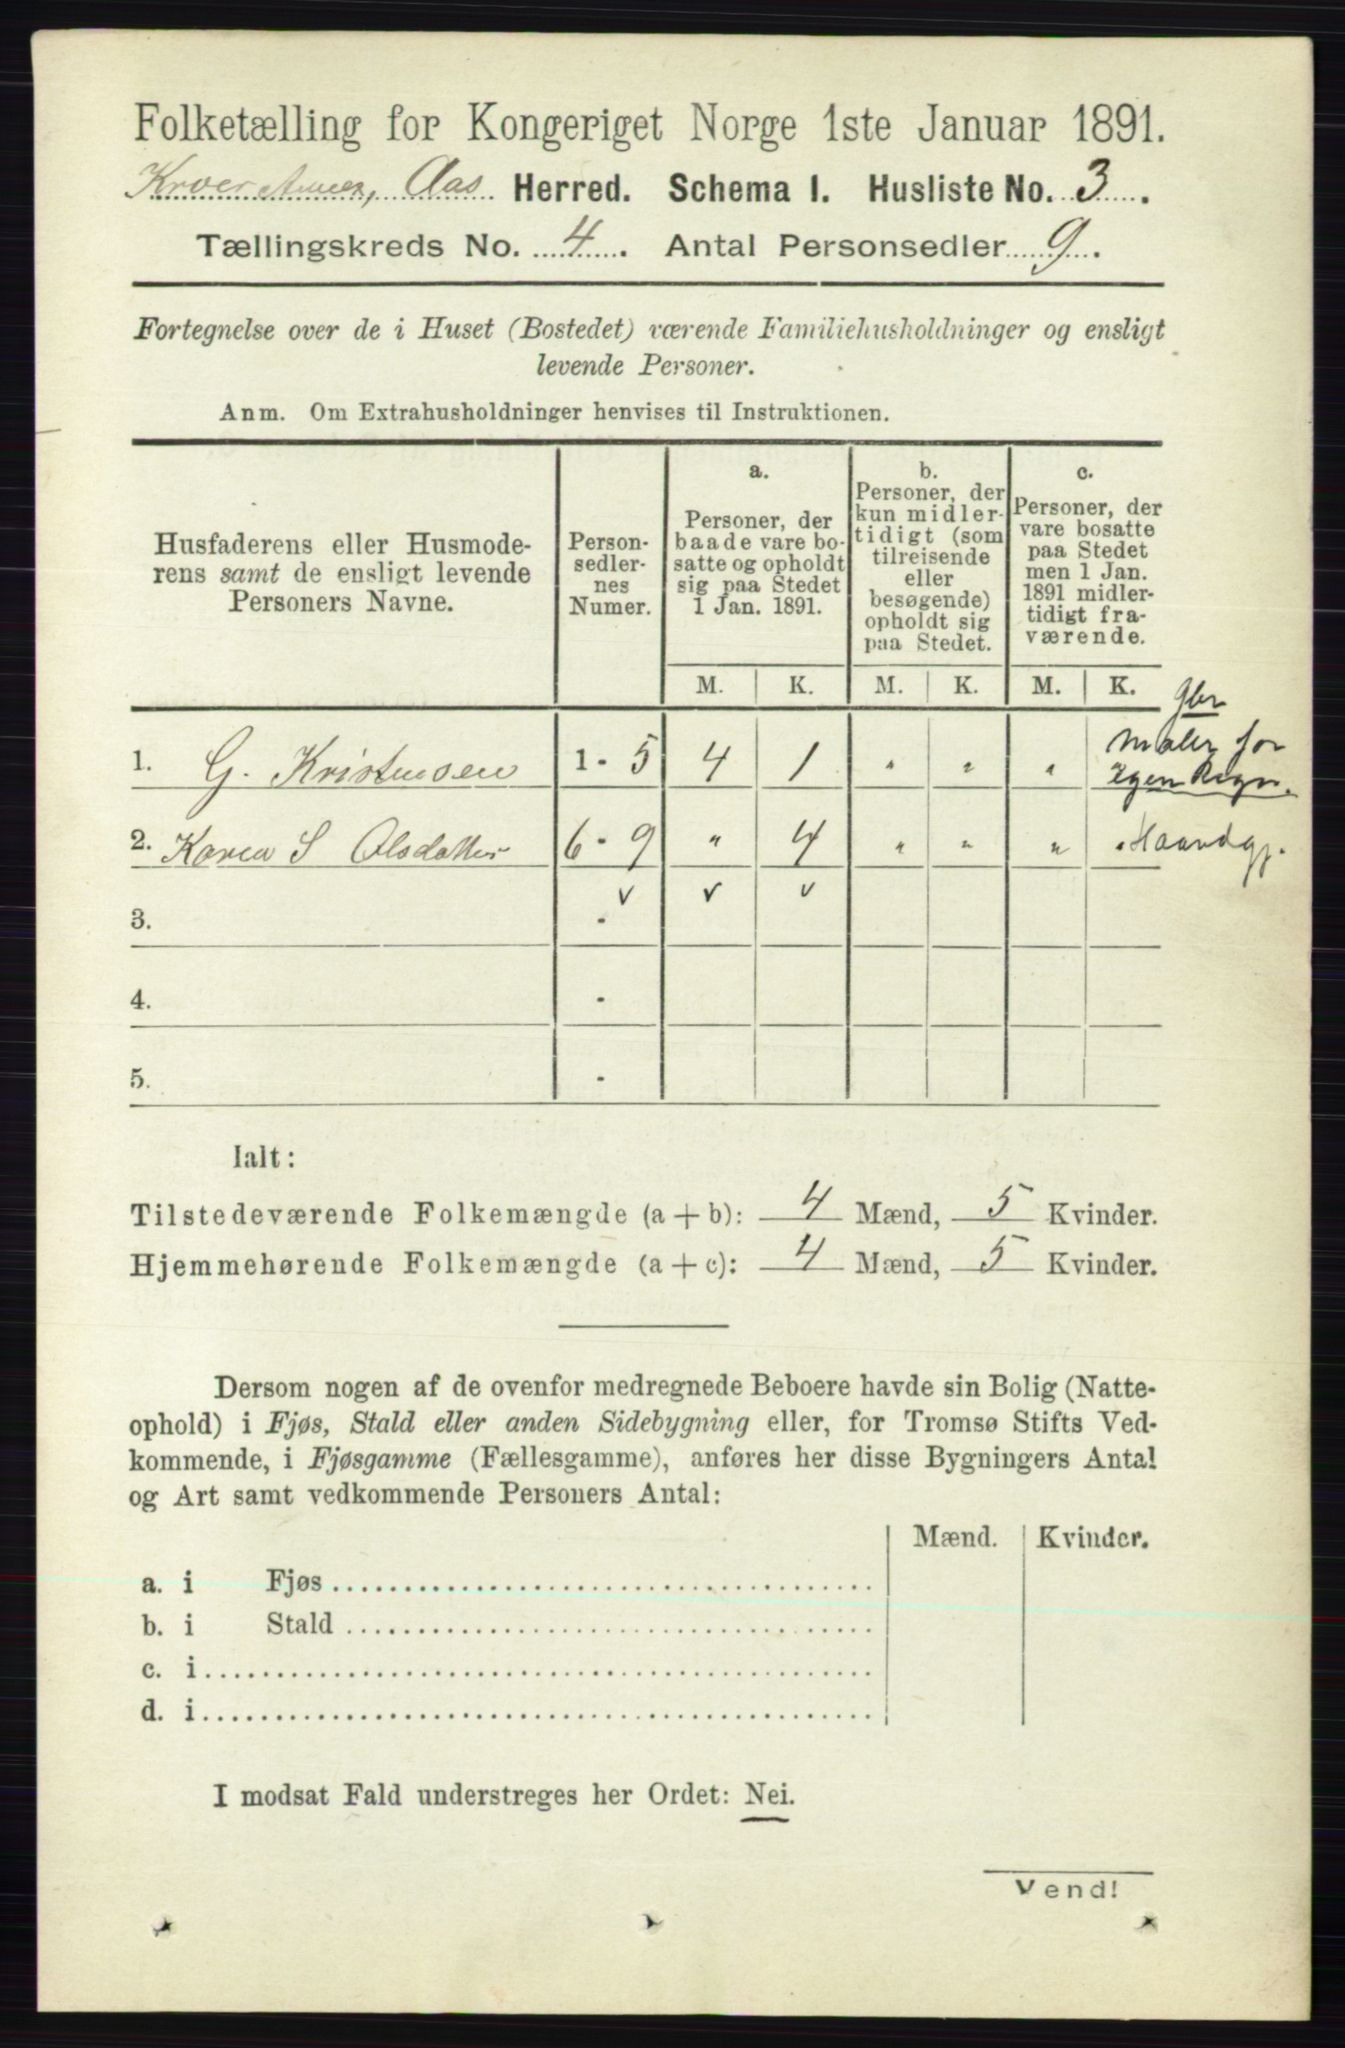 Folketælling for Kongeriget Norge 1ste Januar 1891.
Kroer Annex, Aas Herred. Schema I. Husliste No. 3.
Tællingskreds No. 4. Antal Personsedler 9.
Fortegnelse over de i Huset (Bostedet) værende Familiehusholdninger og ensligt
levende Personer.
Anm. Om Extrahusholdninger henvises til Instruktionen.
Husfaderens eller Husmode-
rens samt de ensligt levende
Personers Navne.
Person-
sedler-
nes
Numer.
a.
Personer, der
baade vare bo-
satte og opholdt
sig paa Stedet
1 Jan. 1891.
b.
Personer, der
kun midler-
tidigt (som
tilreisende
eller
besøgende)
opholdt sig
paa Stedet.
c.
Personer, der
vare bosatte
paa Stedet
men 1 Jan.
1891 midler-
tidigt fra-
værende.
M. K. M. K. M. K.
Gbr
Maler for
egen Regn.
1. G. Kristensen 1 - 5 4 1 " " "
2. Karen S Olsdatter 6 - 9 " 4 " " " " Haandgj.
v v v
3. -
4. -
5. -
Ialt:
Tilstedeværende Folkemængde (a + b): 4 Mænd, 5 Kvinder.
Hjemmehørende Folkemængde (a + c): 4 Mænd, 5 Kvinder.
Dersom nogen af de ovenfor medregnede Beboere havde sin Bolig (Natte-
ophold) i Fjøs, Stald eller anden Sidebygning eller, for Tromsø Stifts Ved-
kommende, i Fjøsgamme (Fællesgamme), anføres her disse Bygningers Antal
og Art samt vedkommende Personers Antal:
Mænd. Kvinder.
a. i Fjøs
b. i Stald
c. i
d. i
I modsat Fald understreges her Ordet: Nei.
Vend!